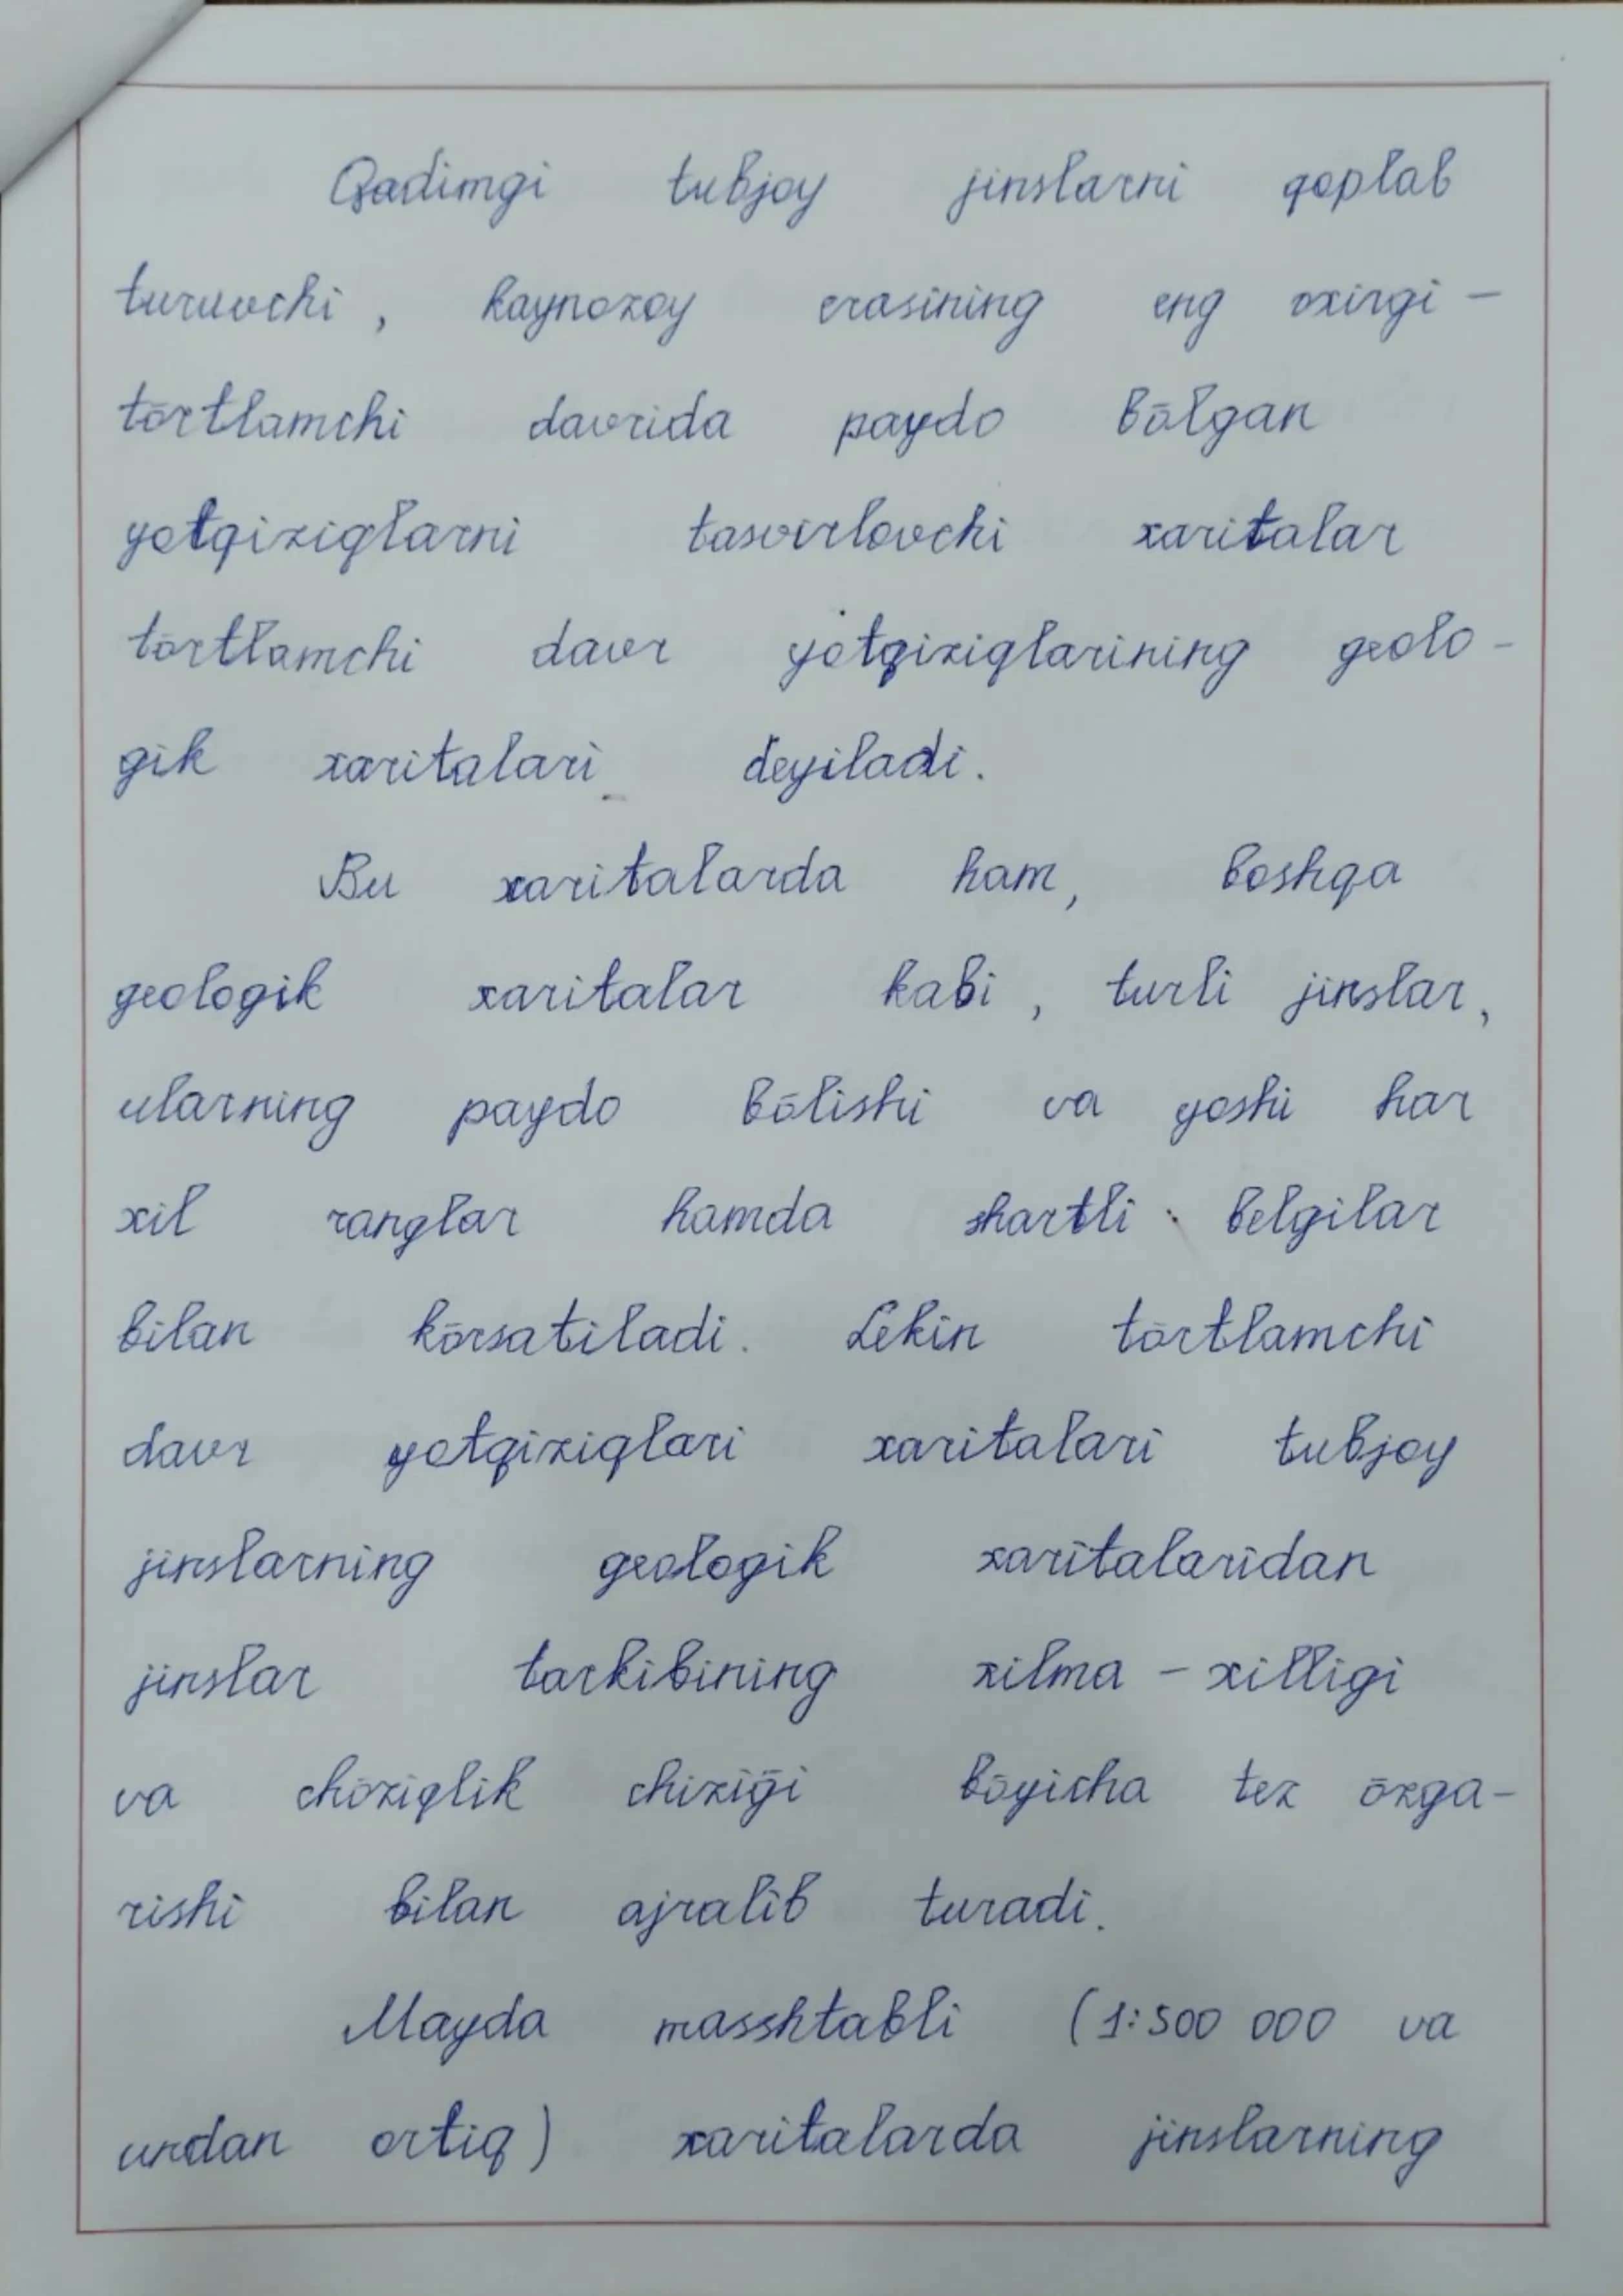 Qadimgi tubjoy jinslarni qoplab
turuvchi, kaynozoy erasining eng oxirgi –
tōrtlamchi davrida paydo bōlgan
yotqiziqlarni tasvirlovchi xaritalar
tōrtlamchi davr yotqiziqlarining geolo-
gik xaritalari deyiladi.
Bu xaritalarda ham, boshqa
geologik xaritalar kabi, turli jinslar,
ularning paydo bōlishi va yoshi har
xil ranglar hamda shartli belgilar
bilan kōrsatiladi. Lekin tōrtlamchi
davr yotqiziqlari xaritalari tubjoy
jinslarning geologik xaritalaridan
jinslar tarkibining xilma – xilligi
va chōziqlik chiziḡi bōyicha tez ōzga-
rishi bilan ajralib turadi.
Mayda masshtabli (1:500 000 va
undan ortiq) xaritalarda jinslarning